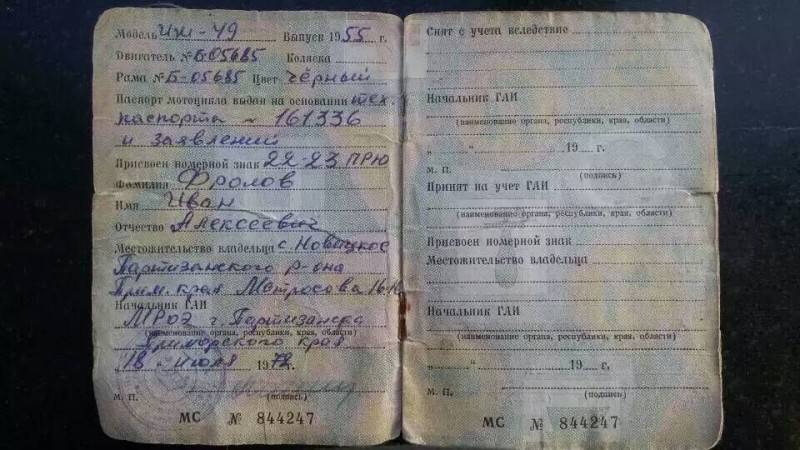 Модель ИЖ-49 Выпуск 1955 г.
Двигатель № Б-05685 Коляска
Рама № Б-05685 Цвет чёрный
Паспорт мотоцикла выдан на основании тех.
паспорта № 161336
и заявлений
Присвоен номерной знак 22-23 ПРЮ
Фамилия Фролов
Имя Иван
Отчество Алексеевич
Местожительство владельца с. Новицкое
Партизанского р-она
Прим. края Матросова 16
Начальник ГАИ
МРО2 г. Партизанска
(наименование органа, республики, края, области)
Приморского края
„18 " июля 1972 г.
М. П. (подпись)
МС № 844247
Снят с учета вследствие
Начальник ГАИ
(наименование органа, республики, края, области)
„ " 19 г.
М. П. (подпись)
Принят на учет ГАИ
(наименование органа, республики, края, области)
Присвоен номерной знак
Местожительство владельца
Начальник ГАИ
(наименование органа, республики, края, области)
„ " 19 г.
М. П. (подпись)
МС № 844247